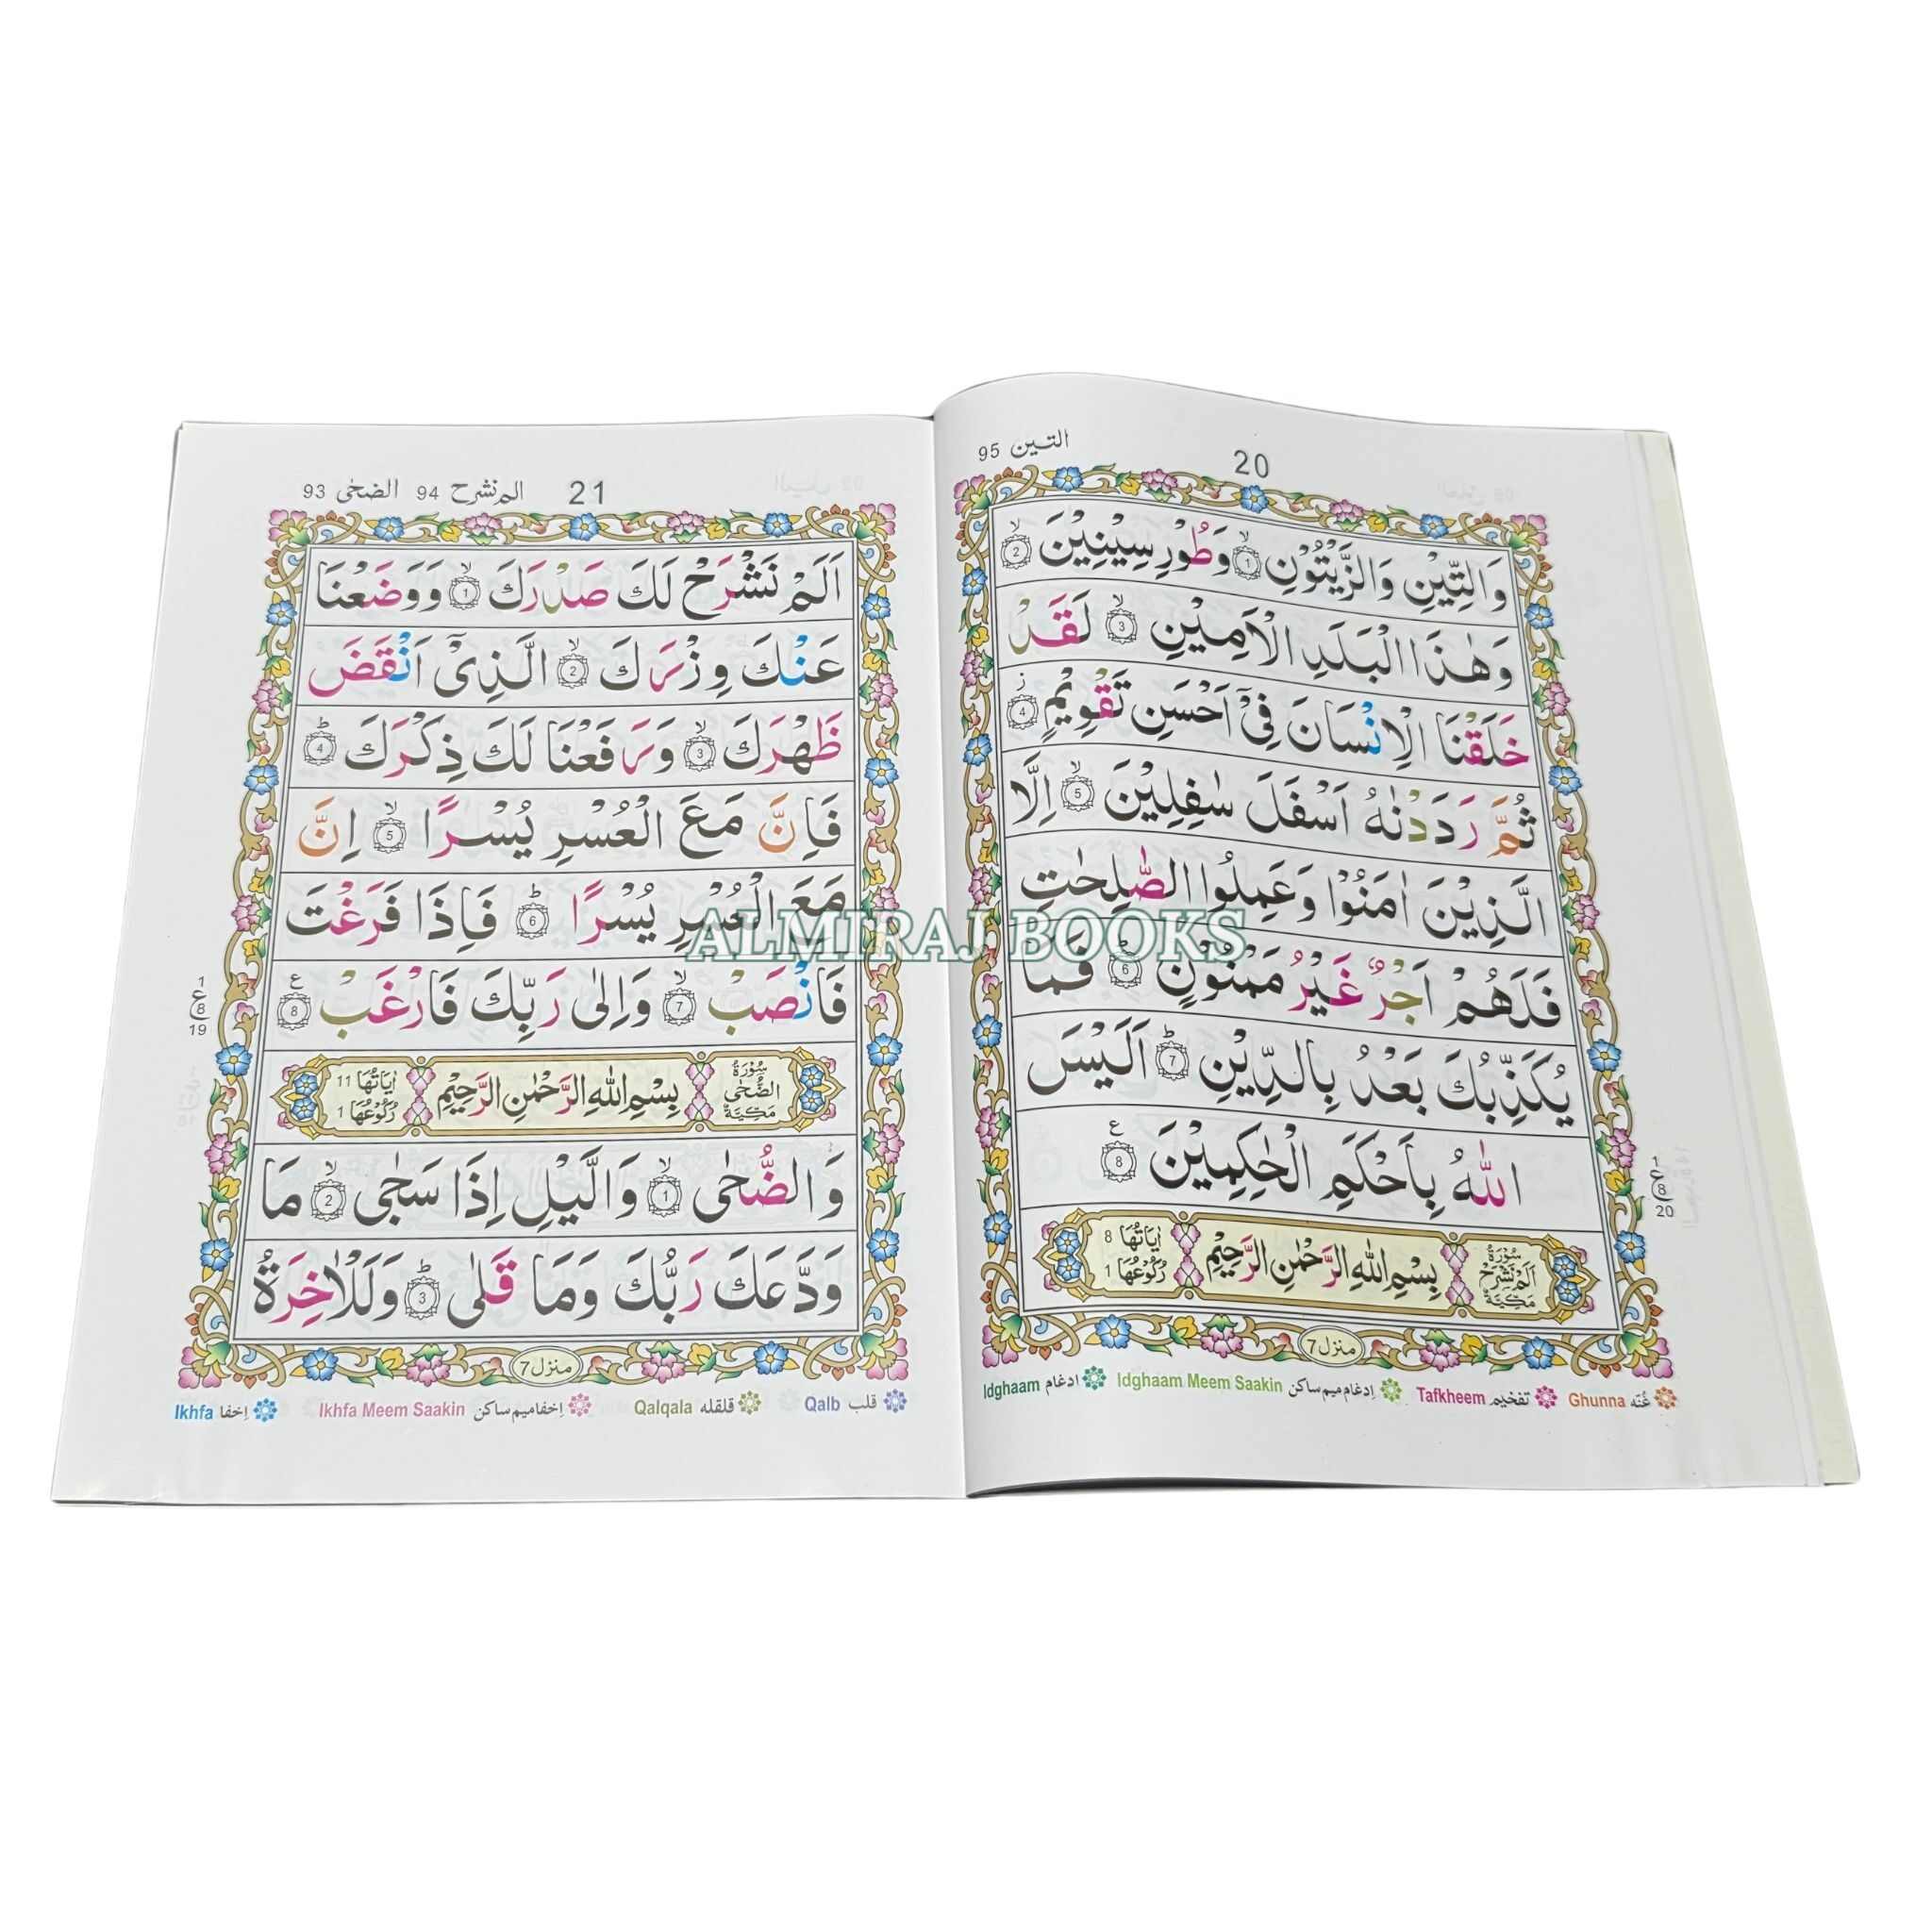 التين 95
20
وَالتِّيْنِ وَالزَّيْتُوْنِ ۙ1 وَطُوْرِ سِيْنِيْنَ ۙ2
وَهٰذَا الْبَلَدِ الْاَمِيْنِ ۙ3 لَقَدْ
خَلَقْنَا الْاِنْسَانَ فِيْٓ اَحْسَنِ تَقْوِيْمٍ ز4
ثُمَّ رَدَدْنٰهُ اَسْفَلَ سٰفِلِيْنَ ۙ5 اِلَّا
الَّذِيْنَ اٰمَنُوْا وَعَمِلُوا الصّٰلِحٰتِ
فَلَهُمْ اَجْرٌ غَيْرُ مَمْنُوْنٍ ؕ6 فَمَا
يُكَذِّبُكَ بَعْدُ بِالدِّيْنِ ؕ7 اَلَيْسَ
اللّٰهُ بِاَحْكَمِ الْحٰكِمِيْنَ ع8
1
ع
8
20
سُوْرَةُ اَلَمْ نَشْرَحْ مَكِّيَّةٌ
بِسْمِ اللّٰهِ الرَّحْمٰنِ الرَّحِيْمِ
اٰيَاتُهَا 8
رُكُوْعُهَا 1
منزل 7
Ghunna غُنّه Tafkheem تفخيم Idghaam Meem Saakin اِدغام ميم ساكن Idghaam ادغام
21
الم نشرح 94 الضحٰى 93
اَلَمْ نَشْرَحْ لَكَ صَدْرَكَ ۙ1 وَوَضَعْنَا
عَنْكَ وِزْرَكَ ۙ2 الَّذِيْٓ اَنْقَضَ
ظَهْرَكَ ۙ3 وَرَفَعْنَا لَكَ ذِكْرَكَ ؕ4
فَاِنَّ مَعَ الْعُسْرِ يُسْرًا ۙ5 اِنَّ
مَعَ الْعُسْرِ يُسْرًا ؕ6 فَاِذَا فَرَغْتَ
فَانْصَبْ ۙ7 وَاِلٰى رَبِّكَ فَارْغَبْ ع8
1
ع
8
19
سُوْرَةُ الضُّحٰى مَكِّيَّةٌ
بِسْمِ اللّٰهِ الرَّحْمٰنِ الرَّحِيْمِ
اٰيَاتُهَا 11
رُكُوْعُهَا 1
وَالضُّحٰى ۙ1 وَالَّيْلِ اِذَا سَجٰى ۙ2 مَا
وَدَّعَكَ رَبُّكَ وَمَا قَلٰى ؕ3 وَلَلْاٰخِرَةُ
منزل 7
Qalb قلب Qalqala قلقله Ikhfa Meem Saakin اِخفا ميم ساكن Ikhfa اِخفا
ALMIRAJ BOOKS